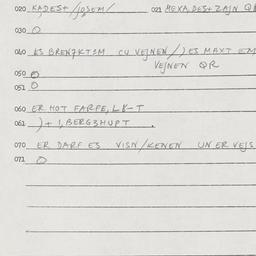 020 KADEST/JOSEM/ 021 MEXA,DES+ZAJN QR
030 O
040 ES BRENZKTSM CU VEJNEN/) ES MAXT EM
VEJNEN QR
050 O
051 O
060 ER HOT FARFE,LK-T
061 )+1,BERG3HUPT .
070 ER DARF ES VISN/KENEN UN ER VEJS
071 O